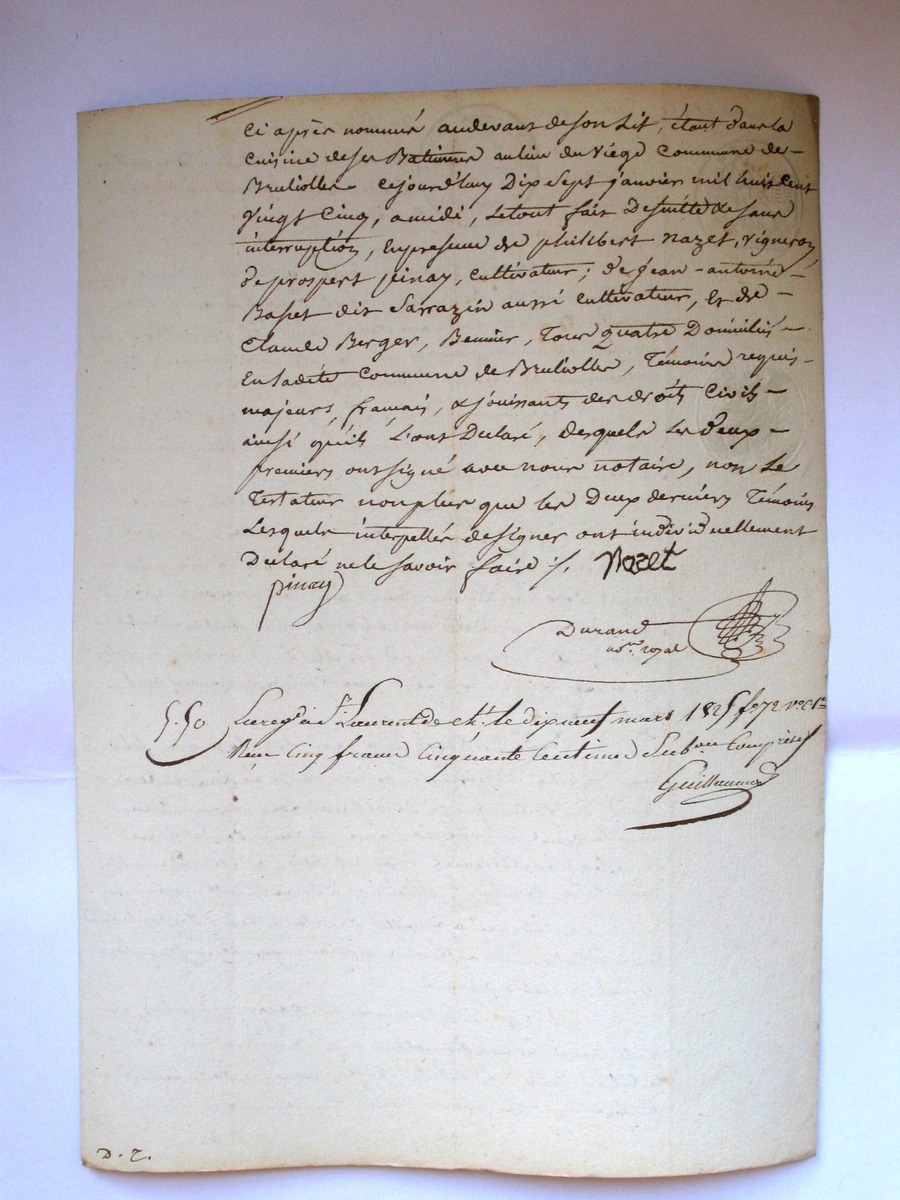 ci après nommés audevant de son Lit, étant dans la
Cuisine de ses Batimens au lieu du Viége Commune de
Brulliolles cejourd'huy Dix Sept janvier mil huit Cent
Vingt Cinq, a midi, le tout fait de suitte & sans
interruption, En présence de philibert Nazet, Vigneron,
de prospert pinay, Cultivateur; de jean-antoine
Basset dit Sarrazin aussi Cultivateur, Et de
Claude Berger, Bennier, Tous quatre Domiciliés
En ladite Commune de Brulliolles, Témoins requis
majeurs, français, & jouissants des droits Civils
ainsi qu'ils L'ont Déclaré, desquels Les deux
premiers ont signé avec nous notaire, non Le
Testateur non plus que les Deux derniers Témoins
Lesquels interpellés de signer ont individuellement
Déclaré ne le savoir faire ./. Nazet
pinay
Durand
no.re royal
5.50 Enregé à St Laurent de Ch. le dix neuf mars 1825 fo 72 Vo C 1re
Reçu Cinq francs Cinquante Centimes Subon Comprise
Guillaumod
D. T.